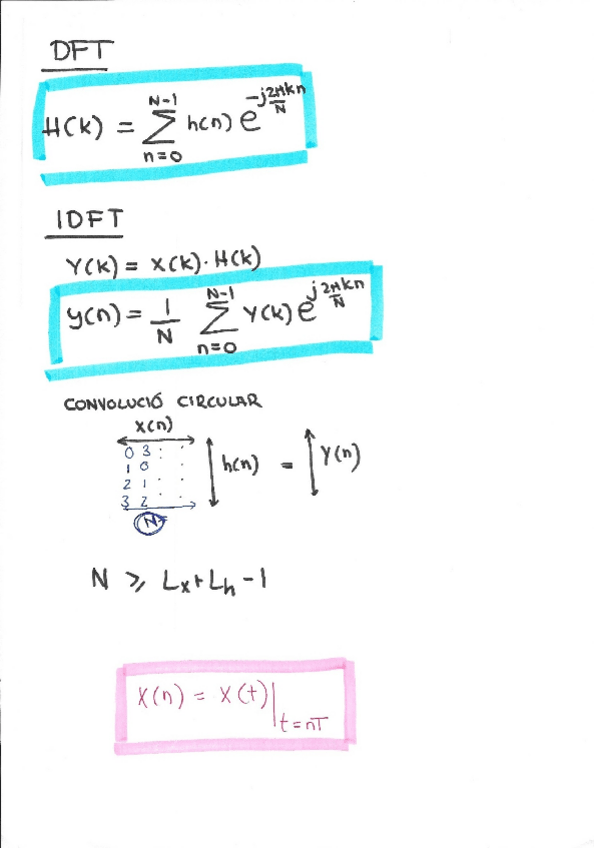 DFT
H(k) = \sum_{n=0}^{N-1} h(n) e^{-j\frac{2\pi kn}{N}}
IDFT
Y(k) = X(k) · H(k)
y(n) = \frac{1}{N} \sum_{n=0}^{N-1} Y(k) e^{j\frac{2\pi kn}{N}}
CONVOLUCIÓ CIRCULAR
x(n)
0 3 : .
1 0 . .
2 1 . .
3 2 . .
h(n) = Y(n)
N
N ≥ Lx + Lh - 1
X(n) = X(t)|_{t=nT}